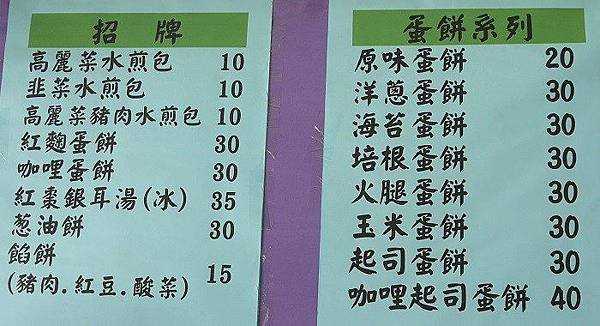 招牌
高麗菜水煎包 10
韭菜水煎包 10
高麗菜豬肉水煎包 10
紅麴蛋餅 30
咖哩蛋餅 30
紅棗銀耳湯(冰) 35
蔥油餅 30
餡餅
(豬肉.紅豆.酸菜) 15
蛋餅系列
原味蛋餅 20
洋蔥蛋餅 30
海苔蛋餅 30
培根蛋餅 30
火腿蛋餅 30
玉米蛋餅 30
起司蛋餅 30
咖哩起司蛋餅 40